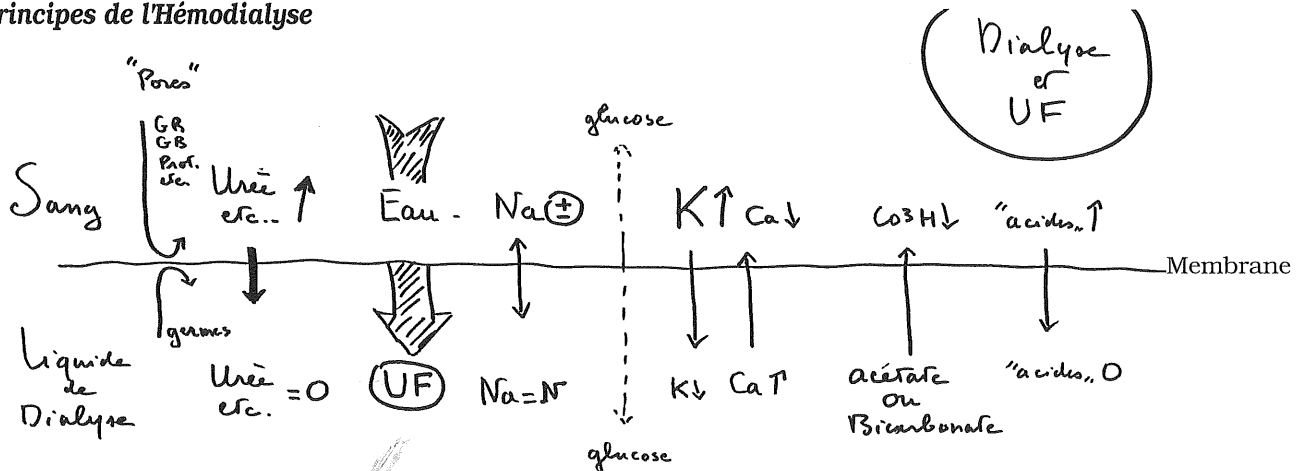 rincipes de l'Hémodialyse
Dialyse
et
UF
"Pores"
GR
GB
Prot.
etc.
glucose
Sang
Urée
etc.. ↑
Eau
Na ±
K↑
Ca↓
CO3H↓
"acides„ ↑
Membrane
germes
Liquide
de
Dialyse
Urée
etc.
=0
UF
Na=N
K↓
Ca↑
acétate
ou
Bicarbonate
"acides„ 0
glucose